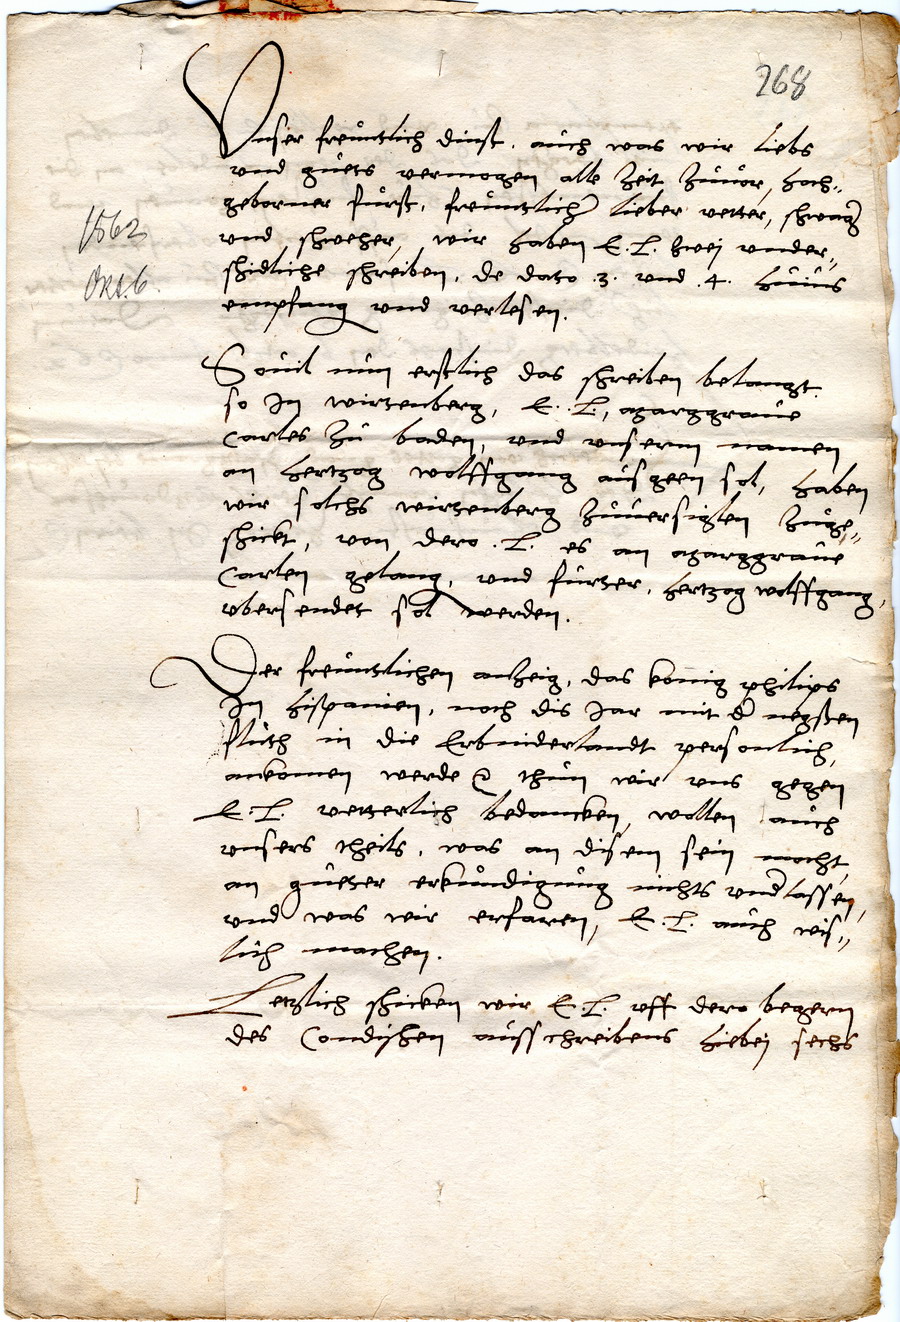 268
Vnser freuntlich dinst, auch was wir liebs
vnd guets vermogen alle zeit zuuor, hoch-
geborner furst, freuntlicher lieber vetter, schwag
vnd schweher, wir haben E. L. zwej vnder-
1562
Okt. 6.
schidliche schreiben, de dato 3. vnd 4. huius
empfang vnd verlesen.
Souil nun erstlich das schreiben belangt
so In wirtenberg, E. L., marggraue
Carles zu baden, vnd vnserm namen
an hertzog wolffgang ausgeen sol, haben
wir solchs wirtenberg zuuersiglen zuge-
schickt, von dero L. es an marggraue
Carlen gelang, vnd furter, hertzog wolffgang,
vbersendet sol werden.
Der freuntlichen anzeig, das konig philips
In hispanien, noch dis Jar mit der negsten
fluth in die Erbniderlandt personlich,
ankomen werde thun wir vns gegen
E. L. vetterlich bedancken, wollen auch
vnsers theils, was an disem sein mocht,
an gueter erkundigung nichts vnderlassen,
vnd was wir erfaren, E. L. auch wis-
lich machen.
Letzlich schicken wir E. L. vff dero begern
des Condischen ausschreibens hiebej sechs